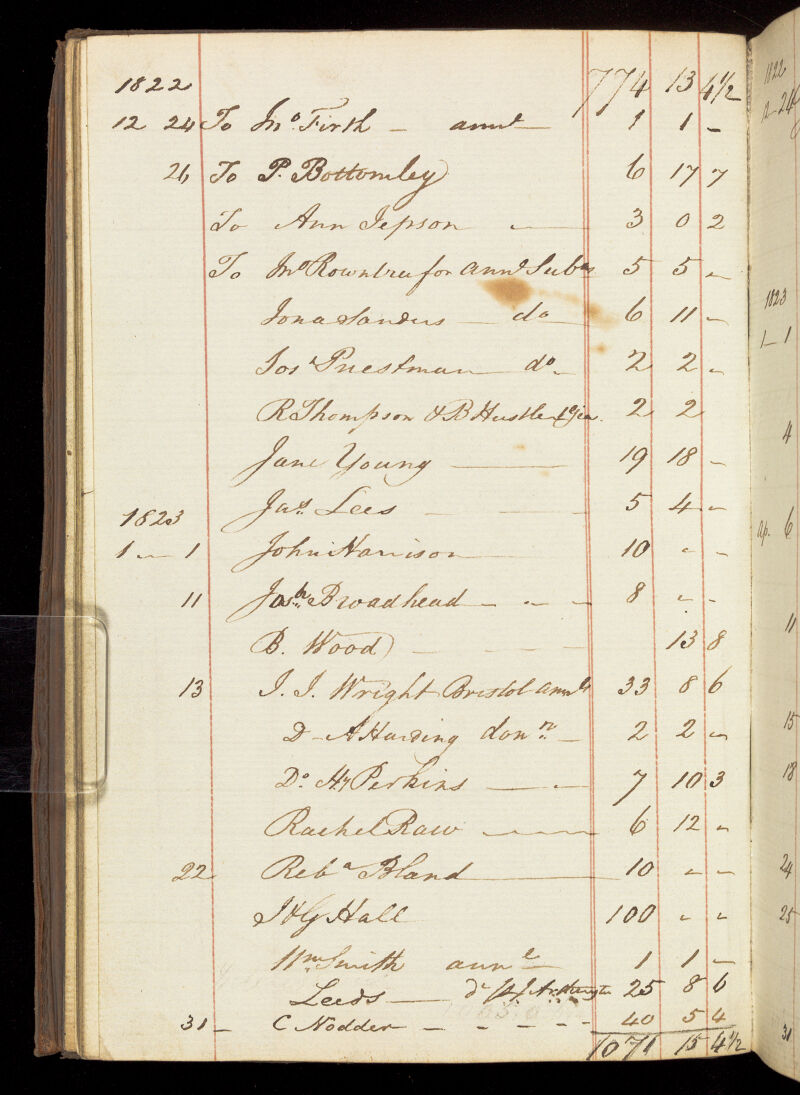 1822 774 13 4½
12 24 To Jno. Firth - annl - 1 1 -
26 To P. Bottomley 6 17 7
To Ann Jepson 3 0 2
To Jno Rowntree for annl Subns 5 5 -
Jona Sanders - do 6 11 -
Josh Priestman - do - 2 2 -
R Thompson & B Hustler 1 Gn. 2 2
Jane Young 19 18 -
Jas. Lees - - - 5 4 -
1823
1 - 1 John Harrison 10 - -
11 Josh. Broadhead - - - 8 - -
B. Wood - - 13 8
13 J. J. Wright Bristol annl 33 8 6
D - A Harding don.n - 2 2 -
Do. Hy Perkins 7 10 3
Rachel Raw 6 12 -
22 Reba Bland 10 - -
J & G Hall 100 - -
Wm Smith annl - 1 1 -
Leeds - do 25 8 6
31 - C Nodder - - - - - - 40 5 4
1071 15 4½
1822
12 - 24
1823
1 - 1
4
ap. 6
11
15
18
24
25
31